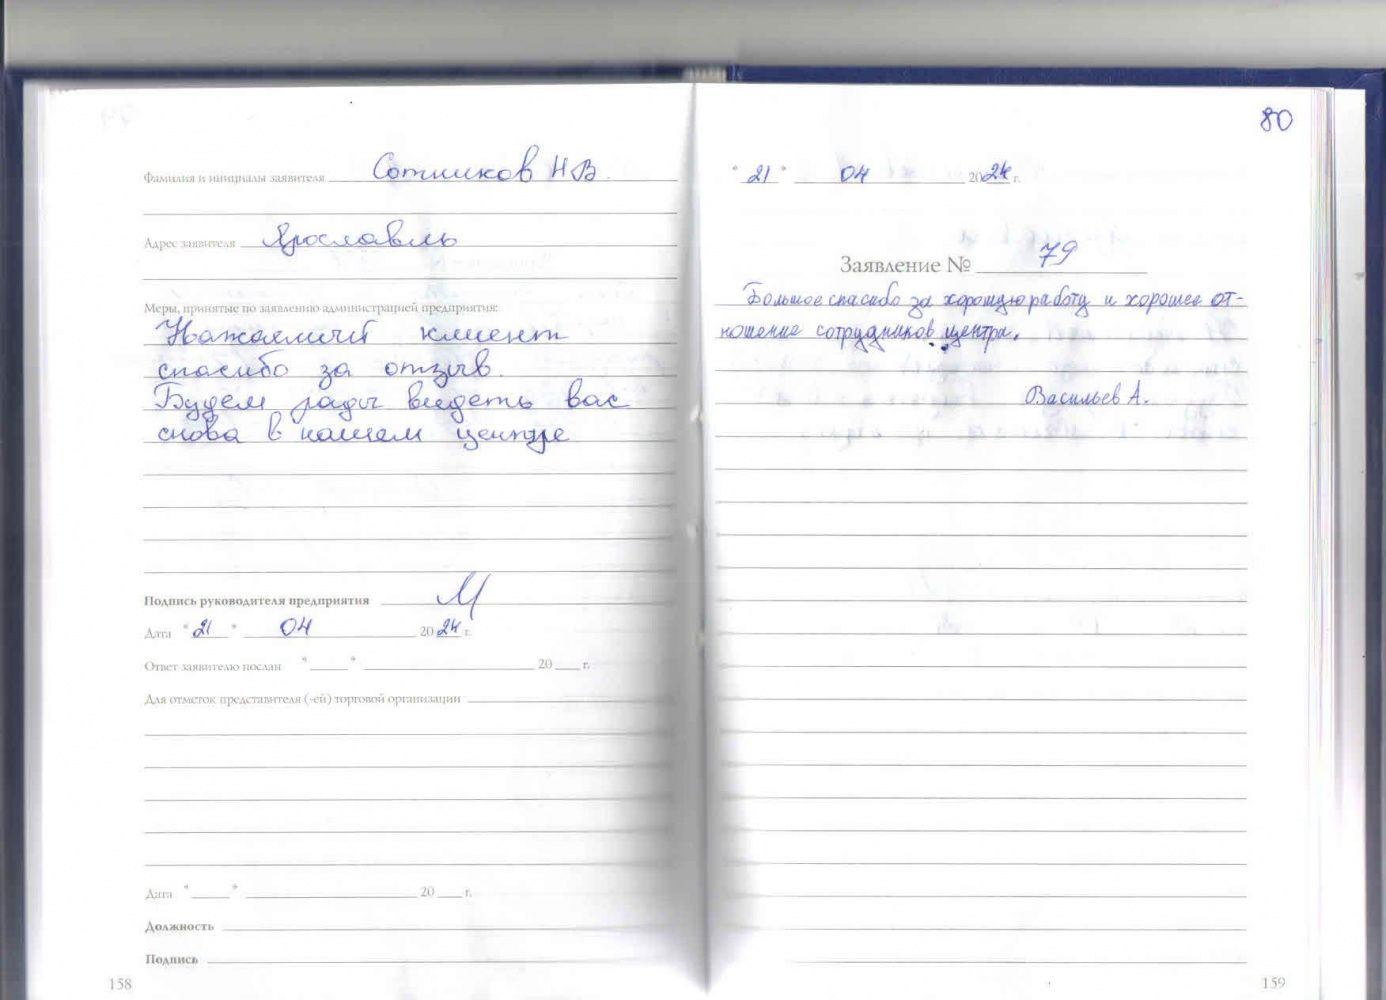 Фамилия и инициалы заявителя Сотников Н В.
Адрес заявителя Ярославль
Меры, принятые по заявлению администрацией предприятия:
клиент
спасибо за отзыв.
Будем рады видеть вас
снова в нашем центре
Подпись руководителя предприятия
Дата "21" 04 2024 г.
Ответ заявителю послан "___" ___ 20 ___ г.
Для отметок представителя (-ей) торговой организации
Дата "___" ___ 20 ___ г.
Должность
Подпись
158
80
"21" 04 2024 г.
Заявление № 79
Большое спасибо за хорошую работу и хорошее от-
ношение сотрудников центра.
Васильев А.
159